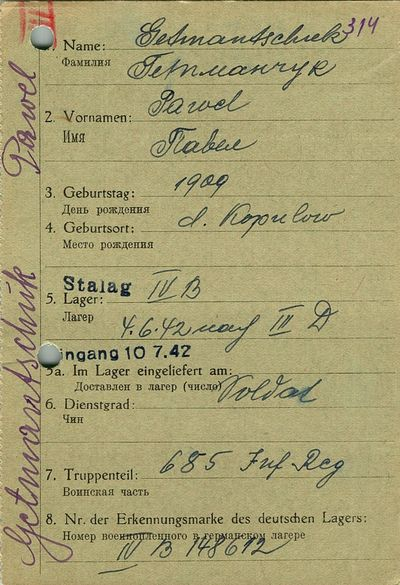 III
314
1. Name: Getmantschuk
Фамилия Гетманчук
2. Vornamen: Pawel
Имя Павел
3. Geburtstag: 1909
День рождения
4. Geburtsort: d. Kopulow
Место рождения
Stalag IV B
5. Lager:
Лагерь 4.6.42 nach III D
Eingang 10 7.42
5a. Im Lager eingeliefert am:
Доставлен в лагерь (число)
6. Dienstgrad: Soldat
Чин
7. Truppenteil: 685 Inf-Reg
Воинская часть
8. Nr. der Erkennungsmarke des deutschen Lagers:
Номер военнопленного в германском лагере
IV B 148612
Getmantschuk Pawel